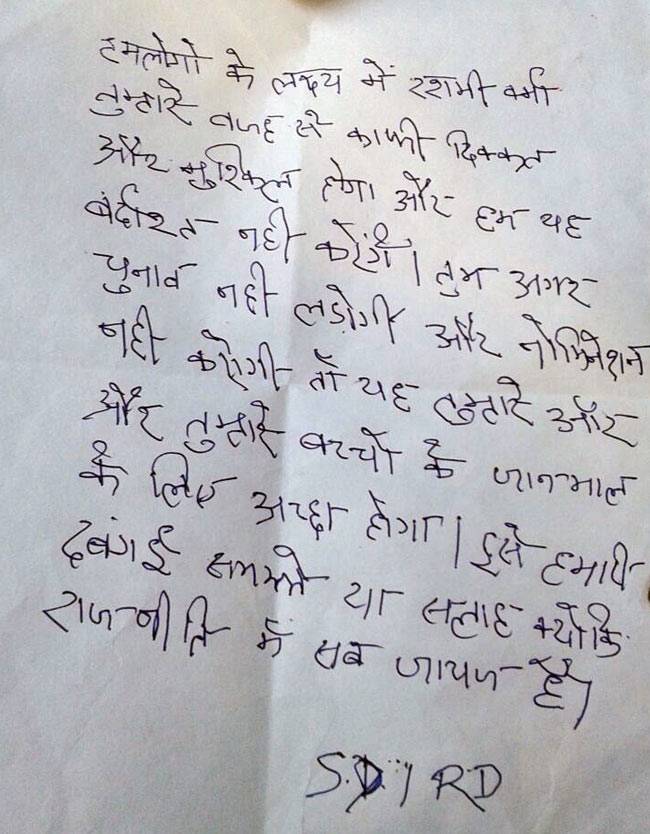 हमलोगो के लक्ष्य में रशमी वर्मा
तुम्हारे वजह से काफी दिक्कत
और मुश्किल होगा और हम यह
बर्दाश्त नही करेंगें। तुम अगर
चुनाव नही लडोगी और नोमिनेशन
नही करोगी तो यह तुम्हारे और
और तुम्हारे बच्चो के जानमाल
के लिए अच्छा होगा। इसे हमारी
दबंगई समझो या सलाह क्योकि
राजनीति में सब जायज है।
RD